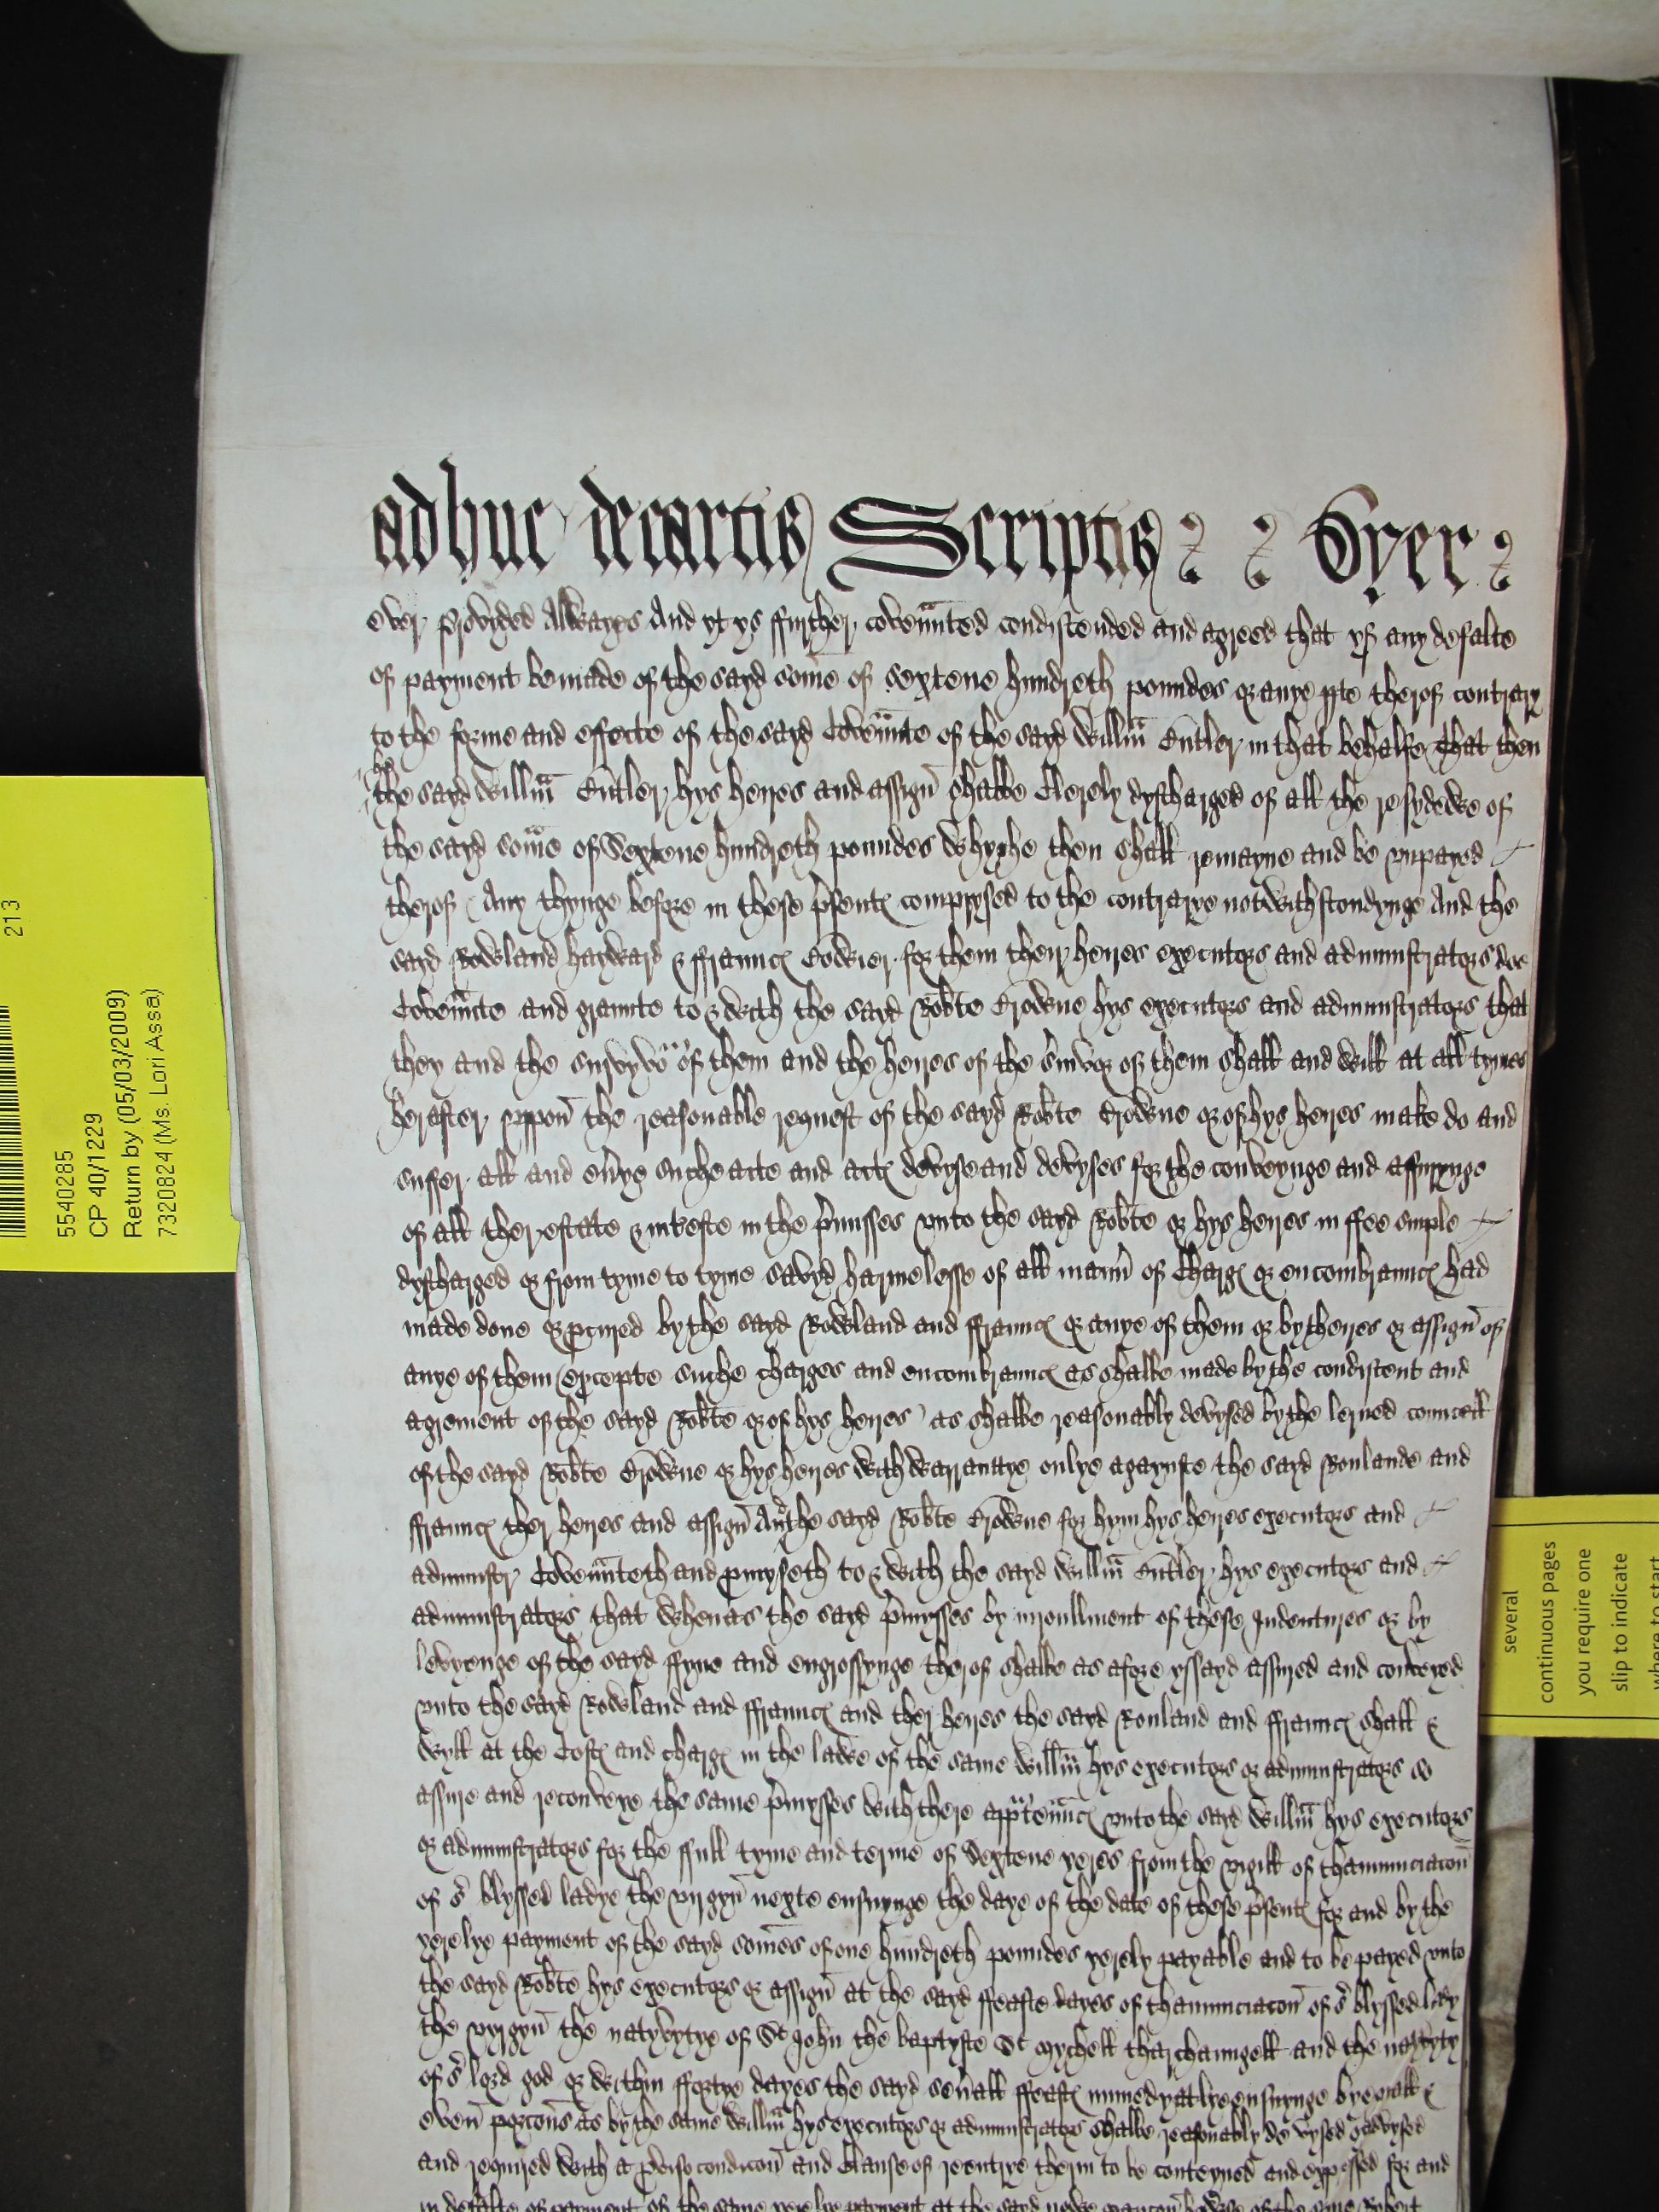 adhuc de cartis Scriptis Oyer
over provyded Alwayes And yt ys ffurther covennted condiscended and agreed that yf any defalte
of payment be made of the sayd some of sextene hundreth poundes or anye pte therof contrary
to the forme and effecte of the sayd Covennte of the sayd Willm Cutler in that behalfe that then
the sayd Willm Cutler hys heires and assign shalbe Clerely dyscharged of all the resydewe of
the sayd some of Sextene hundreth poundes Whyche then shall remayne and be unpayed
therof Any thynge before in these psent comprysed to the contrarye notwithstondynge And the
sayd Rowland hayward & ffraunc for them their heires executors and administrators doe
Covennte and graunte to & with the sayd Robte Crowne hys executors and administrators that
they and the survyvo of them and the heires of the of them shall and will at all tymes
herafter uppon the reasonable request of the sayd Robte Crowne or of hys heires make do and
suffer all and evrye suche acte and act devyse and devyses for the conveynge and assurynge
of all ther estate & in the pmisses unto the sayd Robte or hys heires in ffee simple
dyscharged or from tyme to tyme savyd harmelesse of all mann of Charg or encombraunc had
made done or pcured by the sayd Rowland and ffraunc or anye of them or by theires or assign of
anye of them excepte suche charges and encombraunc as shalbe made by the condiscent and
agrement of the sayd Robte or of hys heires as shalbe reasonably devysed by the lerned councell
of the sayd Robte Crowne or hys heires with warrantye onlye agaynste the sayd Roulande and
ffraunc ther heires and assign And the sayd Robte Crowne for hym hys heires executors and
administr Covennteth and pmyseth to & with the sayd Willm Cutler hys executors and
administrators that whenas the sayd pmysses by inroullment of these Indentures or by
levyenge of the sayd ffyne and engrossynge therof shalbe as afore yssayd assured and conveyed
unto the sayd Rowland and ffraunc and ther heires the sayd Rouland and ffraunc shall &
wyll at the Cost and charg in the lawe of the same Willm hys executors or administrators so
assure and reconveye the same pmysses with there unto the sayd Willm hys executors
or administrators for the ffull tyme and terme of Sextene yeres from the vigill of thannunciacon
of blyssed ladye the virgyn nexte ensuynge the daye of the date of these psent for and by the
yerelye payment of the sayd somes of one hundreth poundes yerely payable and to be payed unto
the sayd Robte hys executors or assign at the sayd ffeaste dayes of thannunciacon of blyssed lady
the vyrgyn the natyvytye of St John the baptyste St mychell tharchaungell and the natyvyty
of lord god or within ffortye dayes the sayd sevall ffeast immedyatlye ensuynge by &
even porcons as by the same Willm hys executors or administrators shalbe reasonably devysed
and required with a condicon and Clause of reentrye therin to be conteyned and expssed for and
in defalte of payment of the same yerelye payment at the sayd of the same Robert
5540285
CP 40/1229
Return by (05/03/2009)
7320824 (Ms. Lori Assa)
213
several
continuous pages
you require one
slip to indicate
where to start